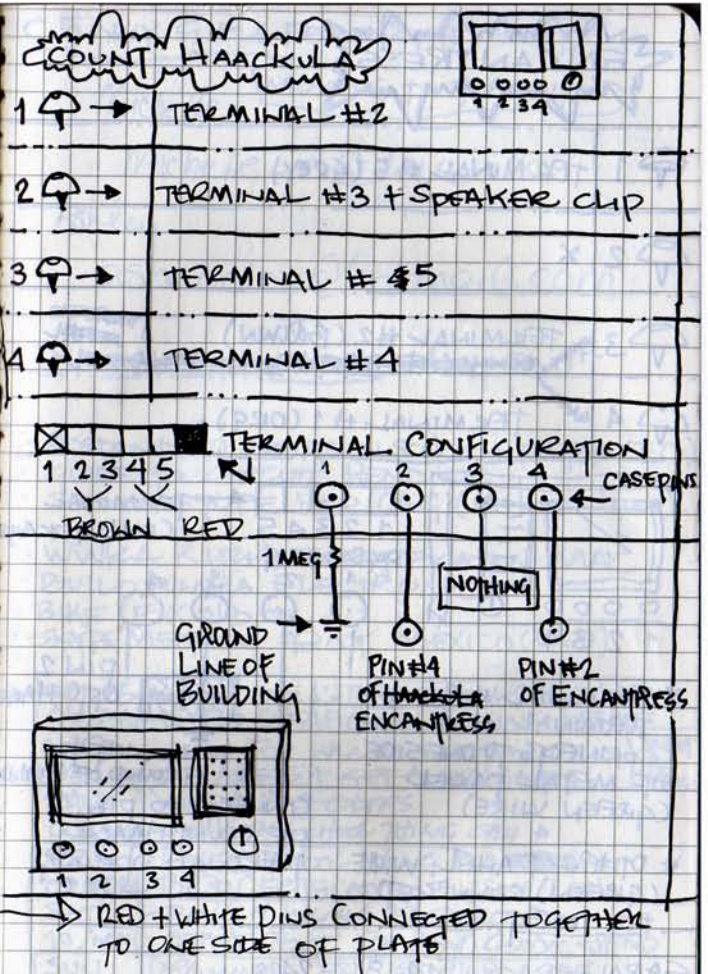 COUNT HAACKULA
1 2 3 4
1 → TERMINAL #2
2 → TERMINAL #3 + SPEAKER CLIP
3 → TERMINAL # 5
4 → TERMINAL #4
TERMINAL CONFIGURATION
1 2 3 4 5
BROWN RED
1 2 3 4
CASEPINS
1 MEG
NOTHING
GROUND
LINE OF
BUILDING
PIN #4
OF HAACKULA
ENCANTRESS
PIN #2
OF ENCANTRESS
1 2 3 4
RED + WHITE PINS CONNECTED TOGETHER
TO ONE SIDE OF PLATE